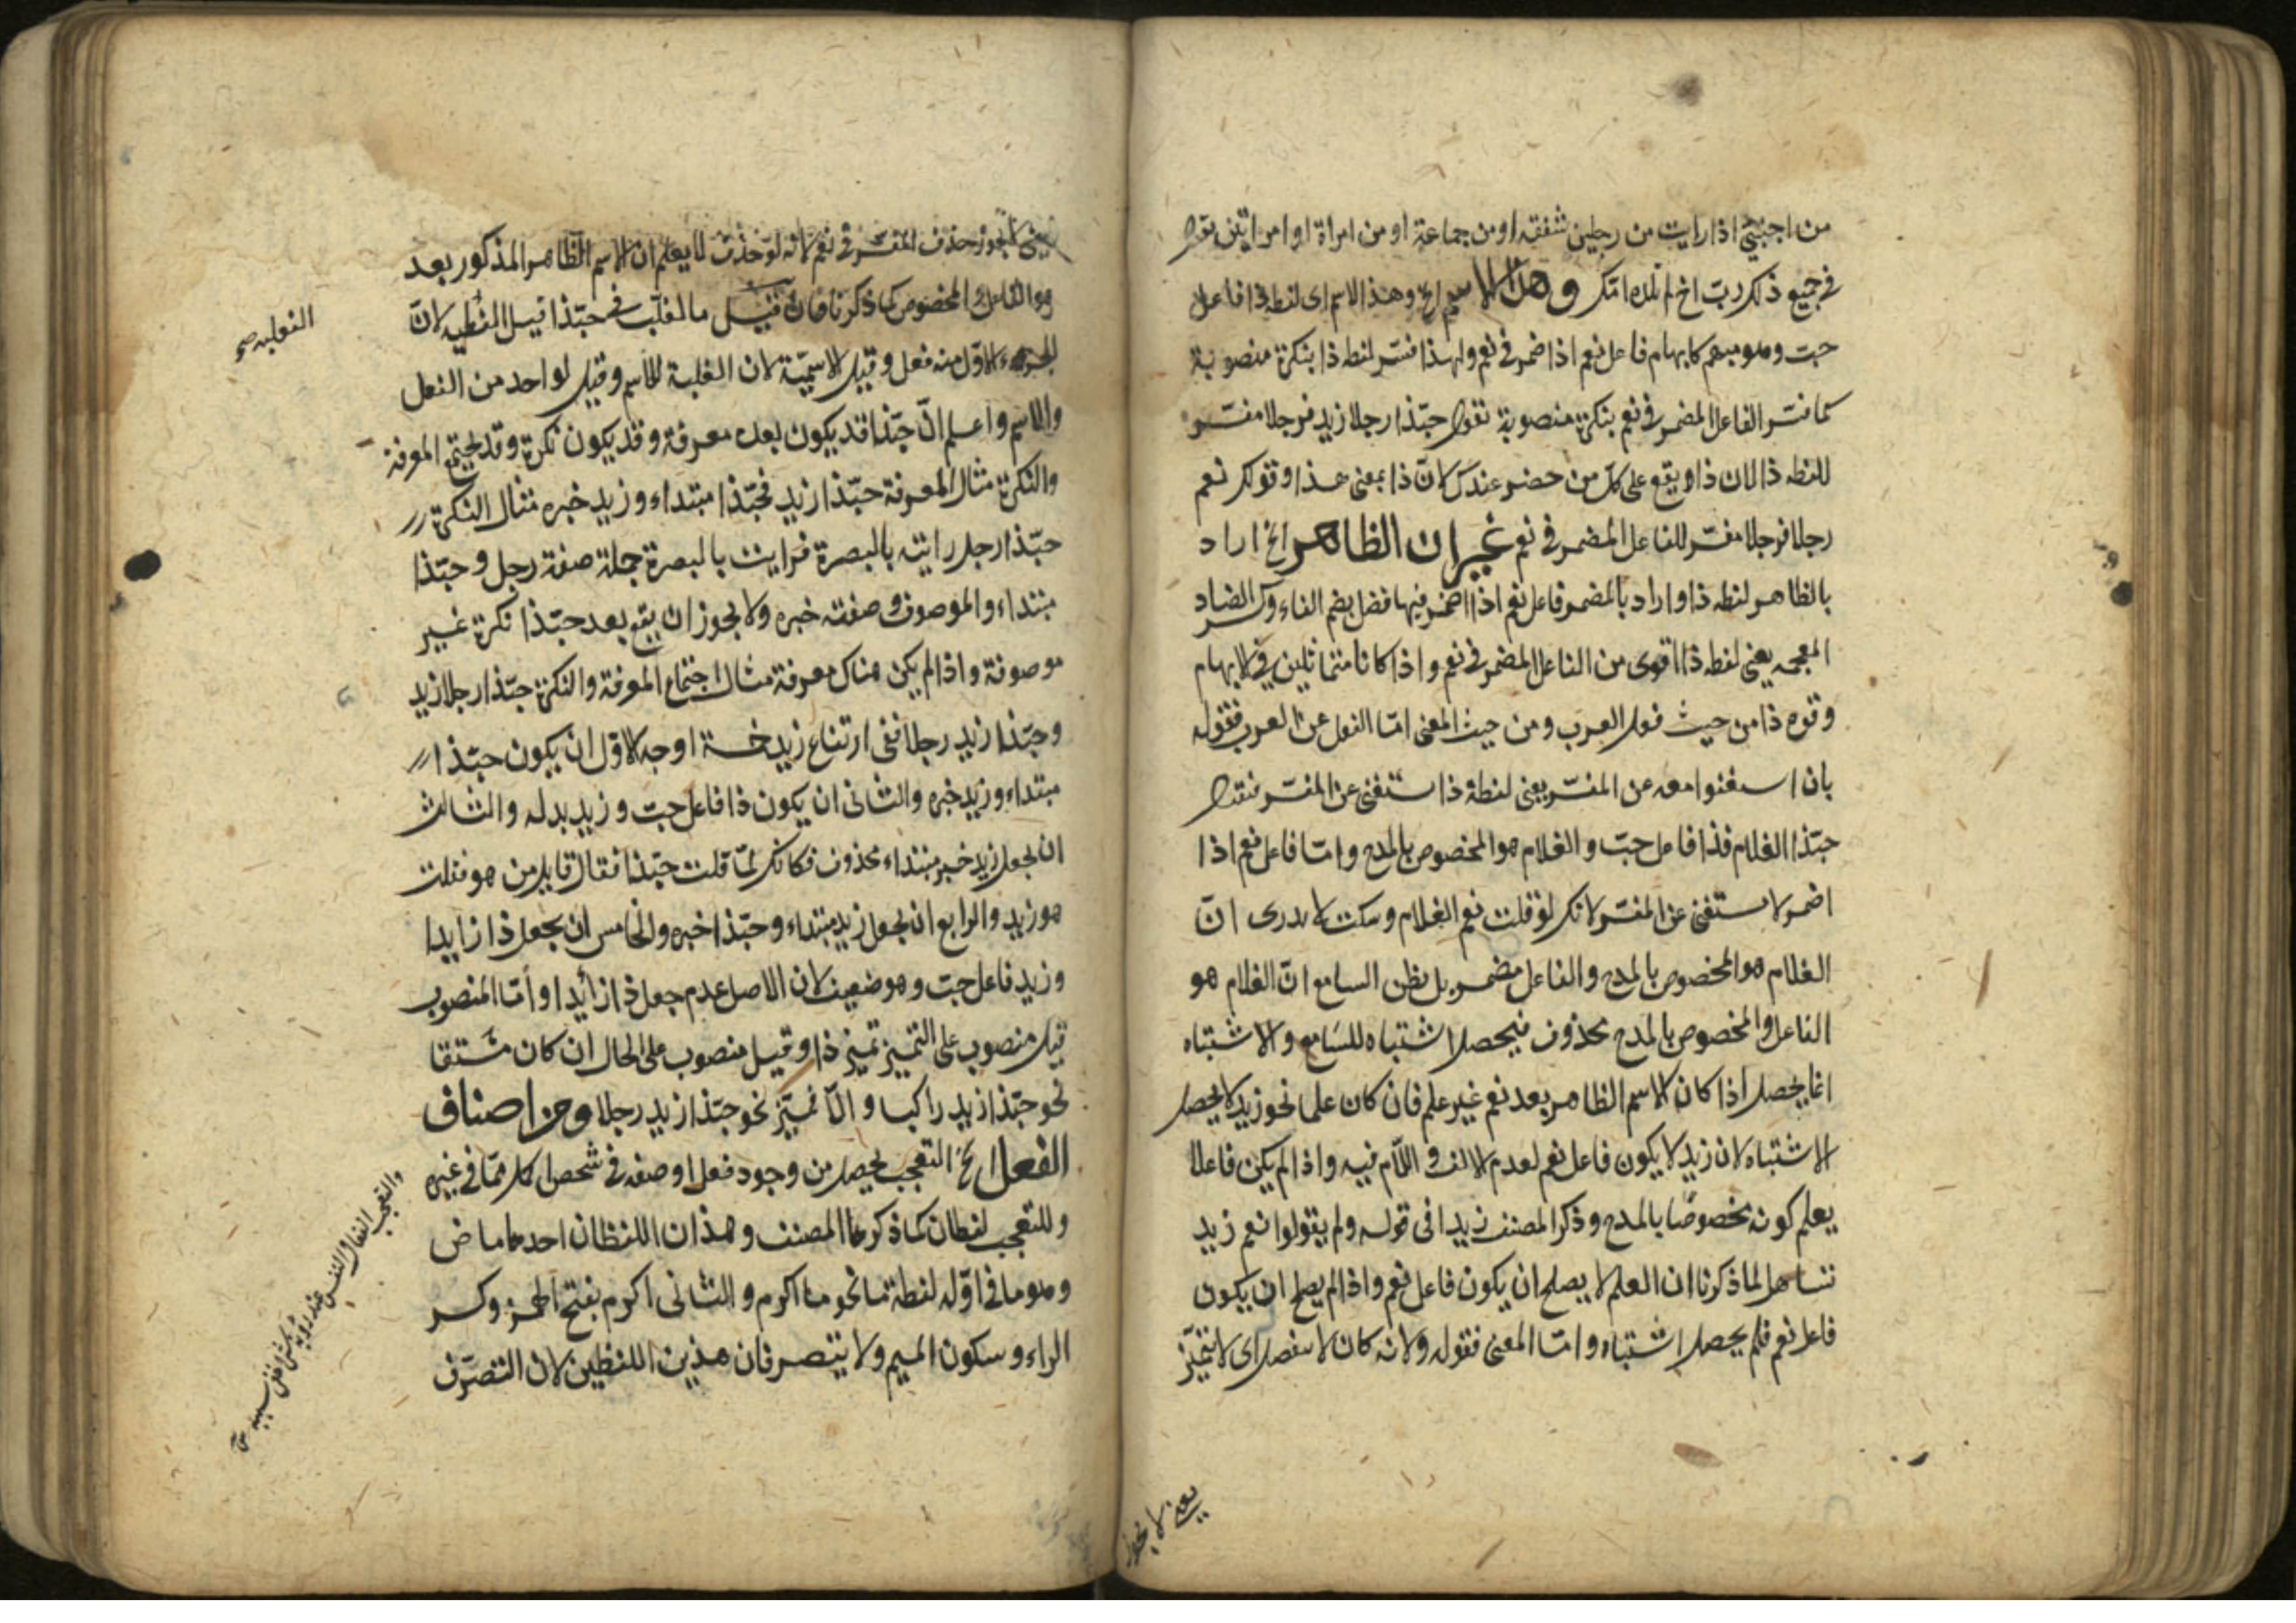 من اجنبي اذا رايت من رجلين شفقة او من جماعة او من امراة او امراتين تقول
في جميع ذلك رب اخ لم تلده امك وهذا الاسم الخ وهذا الاسم اى لفظه ذا فاعل
حبّ وهو مبهم كابهام فاعل نعم اذا اضمر في نعم ولهذا فسّر لفظه ذا بنكرة منصوبة
كما فسّر الفاعل المضمر في نعم بنكرة منصوبة تقول حبّذا رجلا زيد فرجلا مفسّر
للفظه ذا لان ذا ويقع على كل من حضر عندك لانّ ذا بمعنى هذا وقولك نعم
رجلا فرجلا مفسّر للفاعل المضمر في نعم غير ان الظاهر الخ اراد
بالظاهر لفظه ذا واراد بالمضمر فاعل نعم اذا اضمر فيها فضل بضم الفاء وكسر الضاد
المعجمه يعني لفظه ذا اقوى من الفاعل المضمر في نعم واذا كانا متماثلين في الابهام
وقوه ذا من حيث فعل العرب ومن حيث المعنى امّا الفعل عن العرب فقوله
بان استغنوا معه عن المفسّر يعني لفظة ذا استغنى عن المفسّر فتقول
حبّذا الغلام فذا فاعل حبّ والغلام هو المخصوص بالمدح وامّا فاعل نعم اذا
اضمر لا يستغنى عن المفسّر لانك لو قلت نعم الغلام وسكت لا يدرى انّ
الغلام هو المخصوص بالمدح والفاعل مضمر بل يظن السامع انّ الغلام هو
الفاعل والمخصوص بالمدح محذوف فيحصل اشتباه للسّامع والاشتباه
انما يحصل اذا كان الاسم الظاهر بعد نعم غير علم فان كان علما نحو زيد لا يحصل
الاشتباه لان زيد لا يكون فاعل نعم لعدم الالف واللّام فيه واذا لم يكن فاعلا
يعلم كونه مخصوصًا بالمدح وذكر المصنف زيدا في قوله ولم يقولوا نعم زيد
تساهل لما ذكرنا ان العلم لا يصلح ان يكون فاعل نعم واذا لم يصلح ان يكون
فاعل نعم فلم يحصل اشتباه وامّا المعنى فقوله ولانه كان لا ينفصل اى لا يتميّز
يعني لا يجوز
يعني لا يجوز حذف المفسّر في نعم لانه لو حذف لا يعلم ان الاسم الظاهر المذكور بعد
هو الفاعل او المخصوص كما ذكرنا فان قيل ما المغلّب في حبّذا قيل الفعليه لانّ
الجزء الاوّل منه فعل وقيل الاسميّة لان الغلبة للاسم وقيل لواحد من الفعل
والاسم واعلم انّ حبّذا قد يكون بعده معرفة وقد يكون نكرة وقد يجتمع المعرفة
والنكرة مثال المعرفة حبّذا زيد فحبّذا مبتداء وزيد خبره مثال النكرة
حبّذا رجل رايته بالبصرة فرايت بالبصرة جملة صفة رجل وحبّذا
مبتداء والموصوف وصفته خبره ولا يجوز ان يقع بعد حبّذا نكرة غير
موصوفة واذا لم يكن هناك معرفة مثال اجتماع المعرفة والنكرة حبّذا رجلا زيد
وحبّذا زيد رجلا ففي ارتفاع زيد خمسة اوجه الاوّل ان يكون حبّذا
مبتداء وزيد خبره والثاني ان يكون ذا فاعل حبّ وزيد بدله والثالث
ان يجعل زيد خبر مبتداء محذوف فكانك لمّا قلت حبّذا فقال قايل من هو فقلت
هو زيد والرابع ان يجعل زيد مبتداء وحبّذا خبره والخامس ان يجعل ذا زايدا
وزيد فاعل حبّ وهو ضعيف لان الاصل عدم جعل ذا زائدا وأمّا المنصوب
قيل منصوب على التمييز تميز ذا وقيل منصوب على الحال ان كان مشتقا
نحو حبّذا زيد راكبا والّا تميّز نحو حبّذا زيد رجلا ومن اصناف
الفعل الخ التعجب يحصل من وجود فعل او صفه في شخص اكمل ممّا في غيره
وللتعجب لفظان كما ذكرهما المصنف وهذان اللفظان احدهما ماض
وهو ما في اوّله لفظة ما نحو ما اكرم والثاني اكرم بفتح الهمزة وكسر
الراء وسكون الميم ولا يتصرفان هذين اللفظين لان التصرّف
الفعلية صح
والتعجب انفعال النفس عند رؤية شئ خفى سببه صح